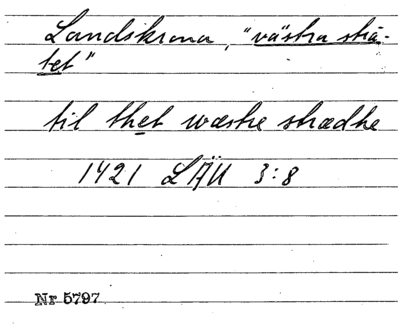 Landskrona, "västra strä-
tet"
til thet wæstre strædhe
1421 LÄU 3:8
Nr 5797